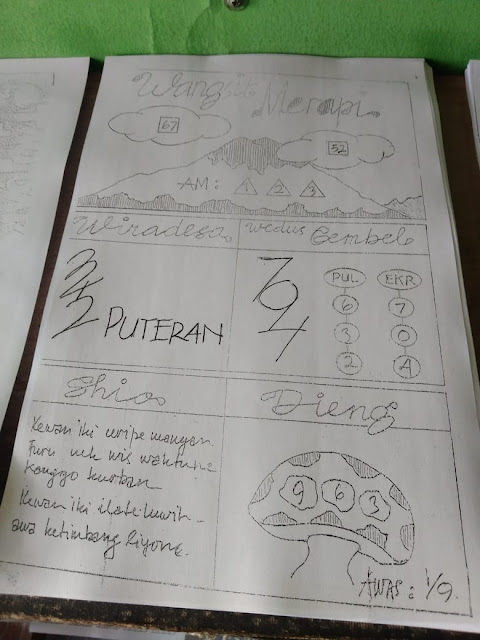 Wangsit
Merapi
67
52
AM: 1 2 3
Wiradesa
Wedus Gembel
3
5
2 PUTERAN
7
9
4
PUL EKR
6 7
3 0
2 4
Shio
Dieng
Kewan iki uripe mangan
Turu nek wis waktune
Kanggo kurban
Kewan iki ilate luwih
awa ketimbang
9 6 3
AWAS: 1/9